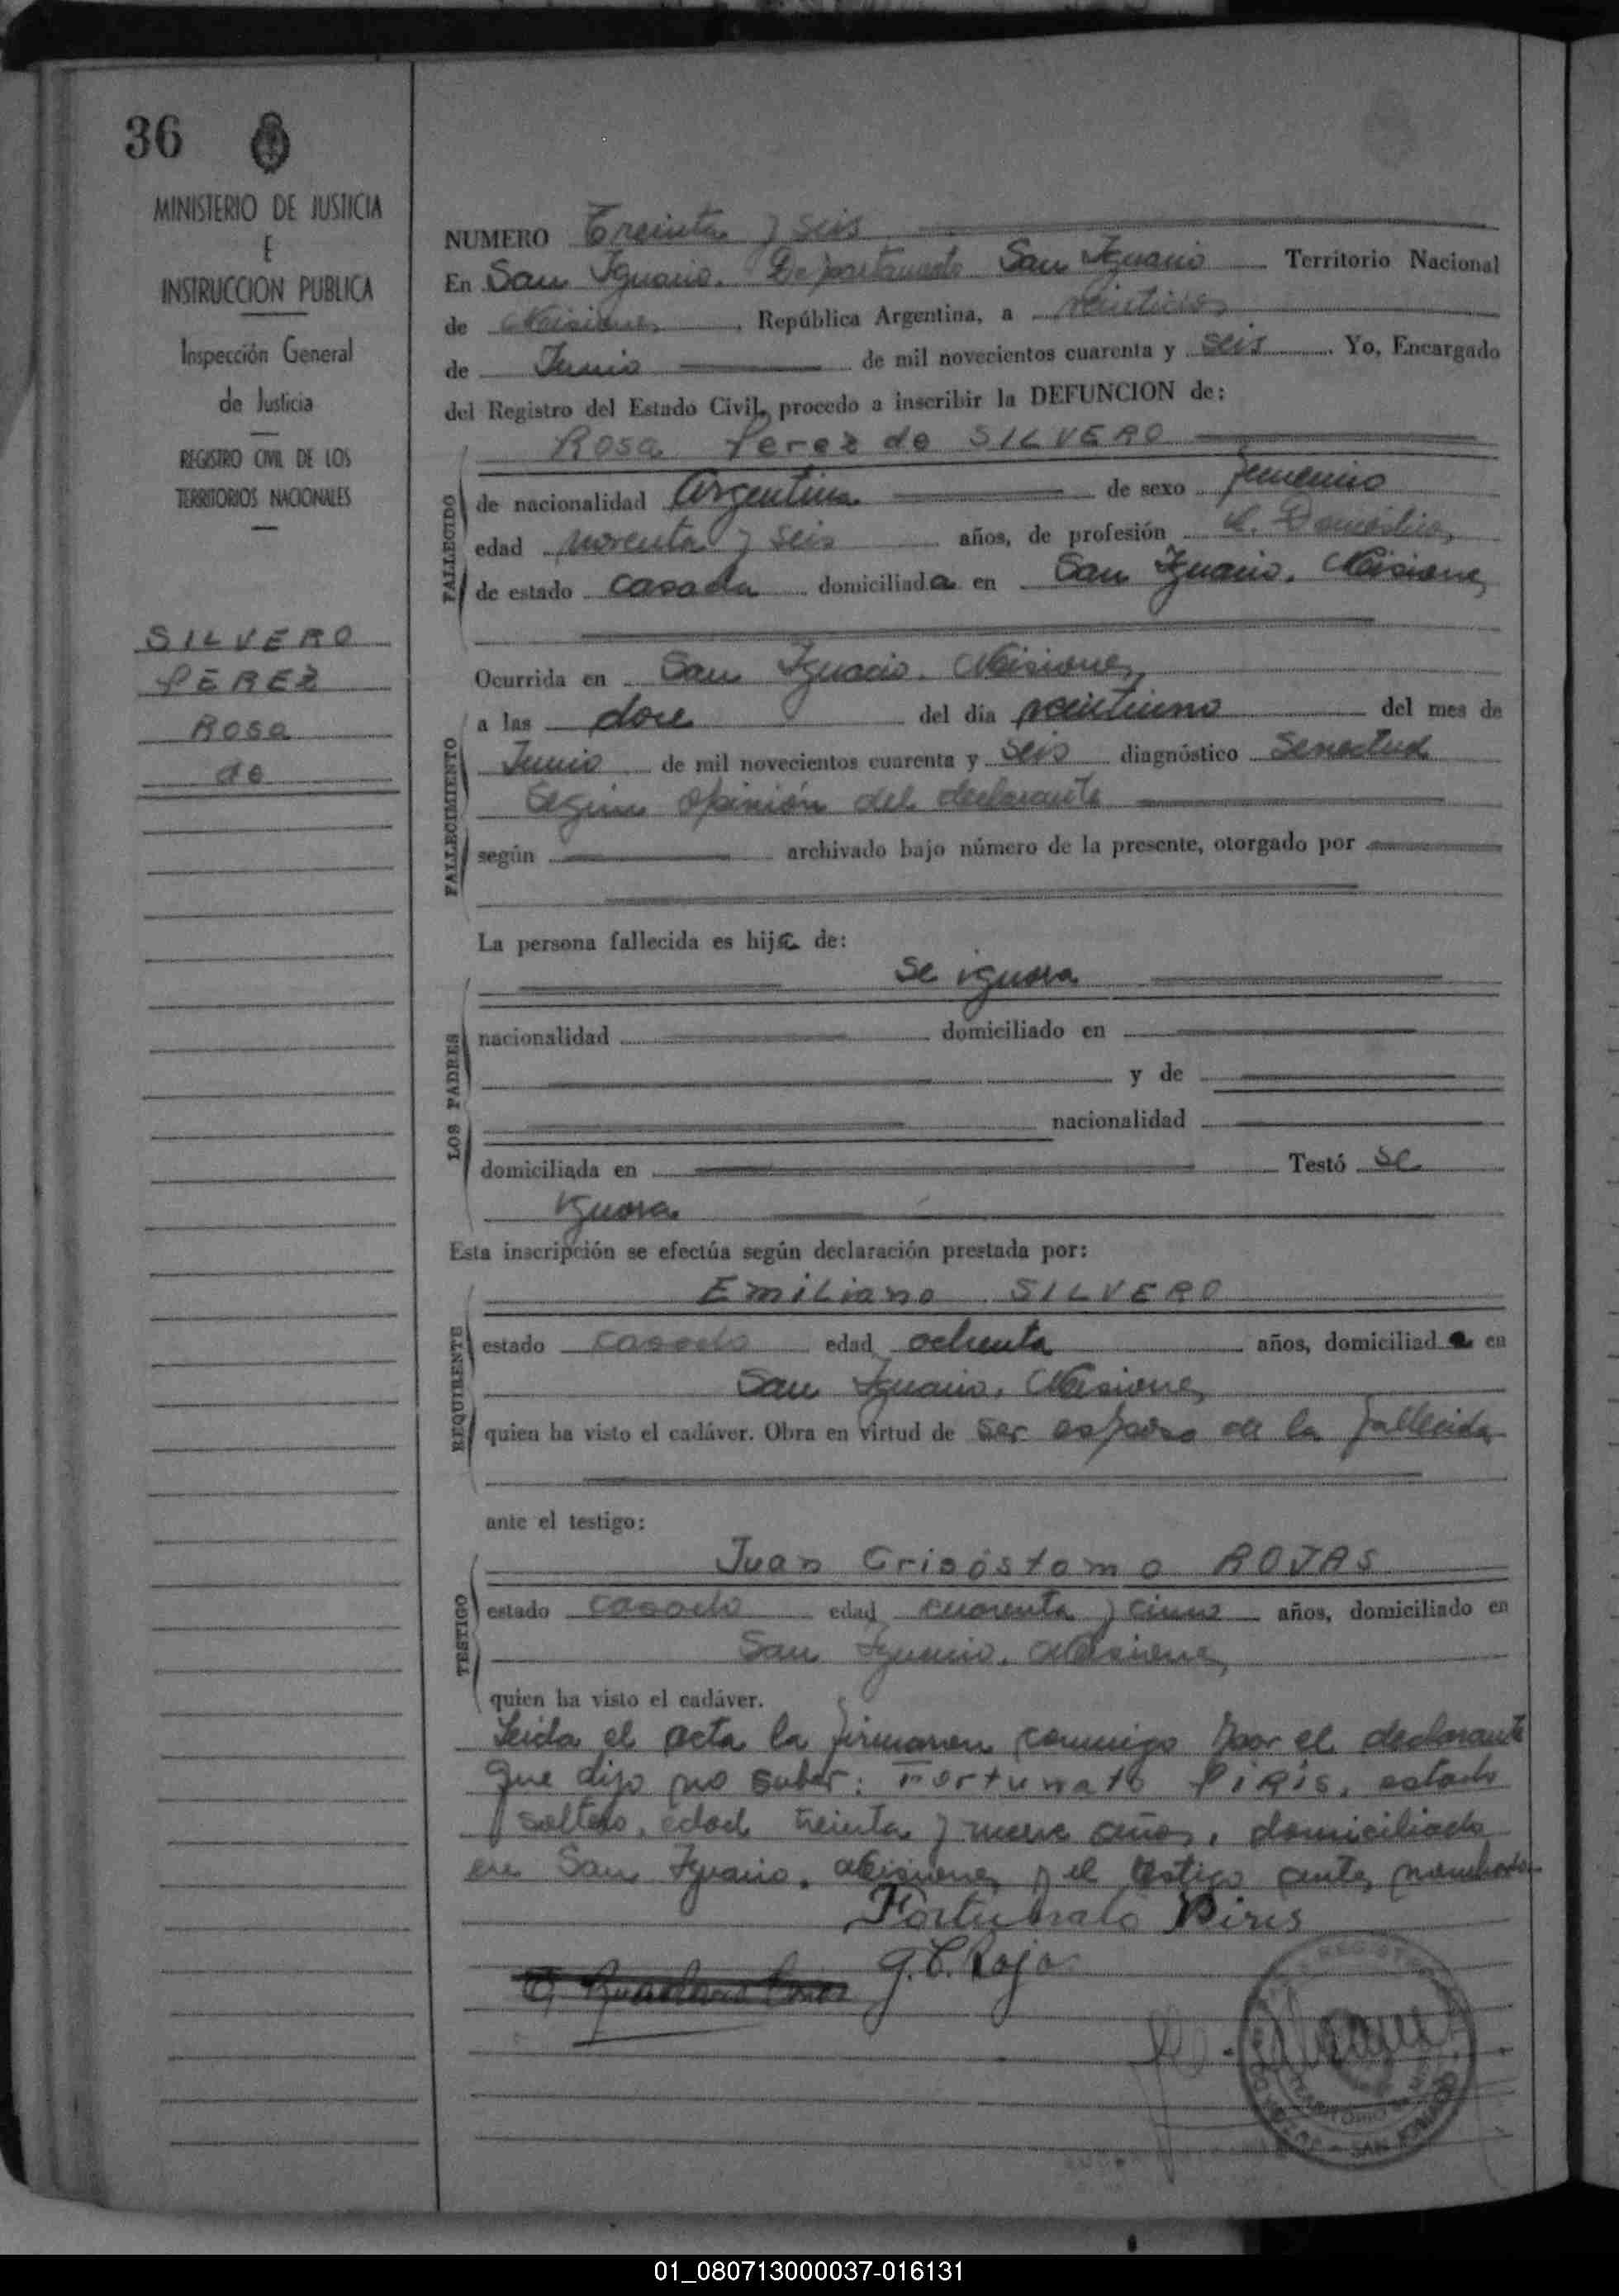 36
MINISTERIO DE JUSTICIA
E
INSTRUCCION PUBLICA
Inspección General
de Justicia
REGISTRO CIVIL DE LOS
TERRITORIOS NACIONALES
SILVERO
PEREZ
Rosa
de
NUMERO Treinta y seis
En San Ignacio. Departamento San Ignacio Territorio Nacional
de Misiones, República Argentina, a
de Junio de mil novecientos cuarenta y seis. Yo, Encargado
del Registro del Estado Civil, procedo a inscribir la DEFUNCION de:
Rosa Perez de SILVERO
FALLECIDO
de nacionalidad Argentina de sexo femenino
edad noventa y seis años, de profesión Q. Domésticos
de estado casada domiciliada en San Ignacio. Misiones
FALLECIMIENTO
Ocurrida en San Ignacio. Misiones
a las doce del día veintiuno del mes de
Junio de mil novecientos cuarenta y seis diagnóstico Senectud
Según opinión del declarante
según archivado bajo número de la presente, otorgado por
La persona fallecida es hija de:
LOS PADRES
se ignora
nacionalidad domiciliado en
y de
nacionalidad
domiciliada en Testó se
ignora
Esta inscripción se efectúa según declaración prestada por:
REQUIRENTE
Emiliano SILVERO
estado casado edad ochenta años, domiciliado en
San Ignacio. Misiones
quien ha visto el cadáver. Obra en virtud de ser esposo de la fallecida
ante el testigo:
TESTIGO
Juan Crisóstomo ROJAS
estado casado edad cuarenta y cinco años, domiciliado en
San Ignacio. Misiones
quien ha visto el cadáver.
Leida el acta la firmaron conmigo por el declarante
que dijo no saber: Fortunato Piris, estado
soltero, edad treinta y nueve años, domiciliado
en San Ignacio, Misiones y el testigo antes nombrado
Fortunato Piris
J. C. Rojas
01_080713000037-016131